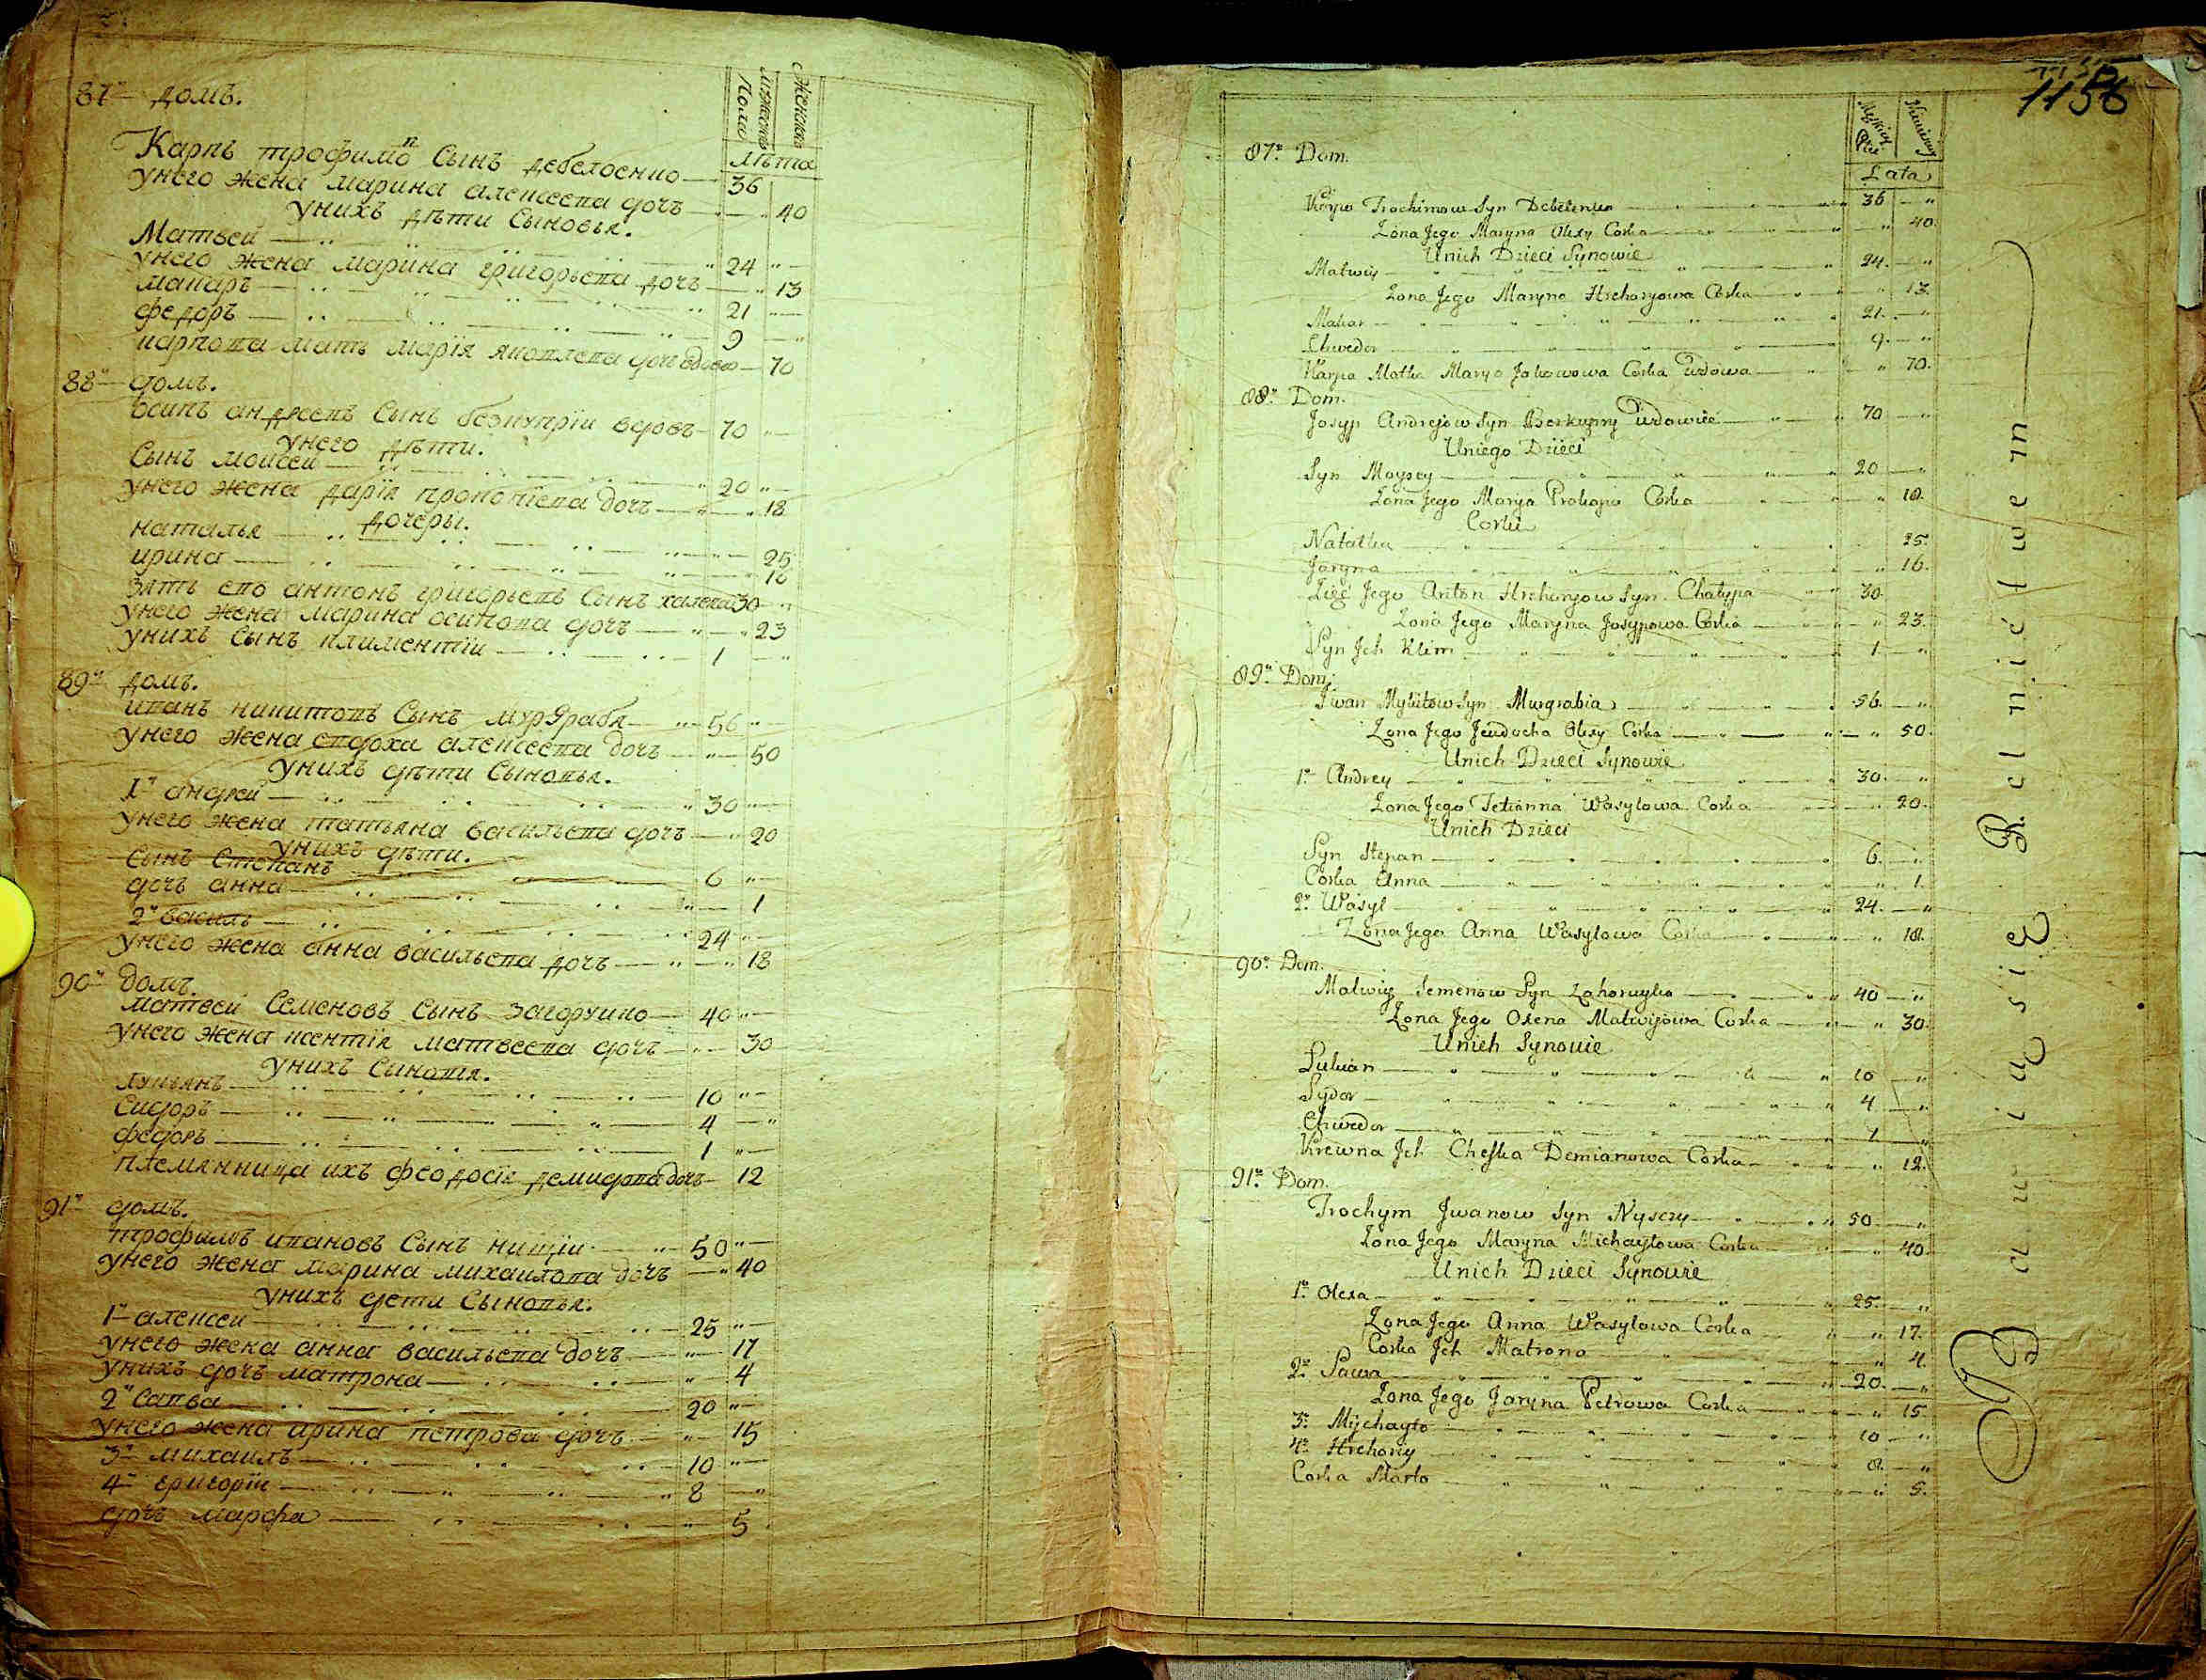 87 домъ.
Мужеска Пола Женска
лѣта
Карпъ трофимовъ Сынъ — 36
унего жена марина алексеева дочь — 40
унихъ дѣти Сыновья.
Матвеи — 24
унего жена марина григорьева дочь — 13
макаръ — 21
федоръ — 9
карпова мать марія яковлева дочь вдова — 70
88 домъ.
осипъ андреевъ Сынъ безкупріи вдовъ — 70
унего дѣти.
Сынъ моисеи — 20
унего жена дарія прокопіева дочь — 18
дочеры.
наталья — 25
ирина — 16
зять его антонъ григорьевъ Сынъ 30
унего жена марина осипова дочь — 23
унихъ Сынъ климентіи — 1
89 домъ.
иванъ никитовъ Сынъ мурграбя — 56
унего жена евдоха алексеева дочь — 50
унихъ дѣти Сыновья.
1 андреи — 30
унего жена татьяна васильева дочь — 20
унихъ дѣти.
Сынъ Степанъ — 6
дочь анна — 1
2 василь — 24
унего жена анна васильева дочь — 18
90 домъ.
матвеи Семеновъ Сынъ загоруико — 40
унего жена ксентія матвеева дочь — 30
унихъ Сыновья.
лукьянъ — 10
Сидоръ — 4
федоръ — 1
племянница ихъ феодосія демидова дочь — 12
91 домъ.
трофимъ ивановъ Сынъ нищіи — 50
унего жена марина михаилова дочь — 40
унихъ дети Сыновья.
1 алексеи — 25
унего жена анна васильева дочь — 17
унихъ дочь матрона — 4
2 Савва — 20
унего жена ирина петрова дочь — 15
3 михаилъ — 10
4 григоріи — 8
дочь марфа — 5
1156
87. Dom.
Lata
Karpo Trochimow Syn — 36
Żona Jego Maryna Olexy Corka — 40
Unich Dzieci Synowie
Matwiy — 24
Żona Jego Maryna Hrehoryowa Corka — 13
Makar — 21
Chwedor — 9
Karpa Matka Marya Jakowowa Corka Wdowa — 70
88. Dom.
Josyp Andrejow Syn Bezkupny Wdowiec — 70
Uniego Dzieci
Syn Moysey — 20
Żona Jego Marya Prokopa Corka — 18
Corki
Natalka — 25
Jaryna — 16
Zięć Jego Anton Hrehoryow Syn Chałypa — 30
Żona Jego Maryna Josypowa Corka — 23
Syn Jch Klim — 1
89. Dom.
Jwan Mykitow Syn Murgrabia — 56
Żona Jego Jewdocha Olexy Corka — 50
Unich Dzieci Synowie
1. Andrey — 30
Żona Jego Tetianna Wasylowa Corka — 20
Unich Dzieci
Syn Stepan — 6
Corka Anna — 1
2. Wasyl — 24
Żona Jego Anna Wasylowa Corka — 18
90. Dom.
Matwiy Semenow Syn Zahoruyko — 40
Żona Jego Oxena Matwijowa Corka — 30
Unich Synowie
Lukian — 10
Sydor — 4
Chwedor — 1
Krewna Jch Cheska Demianowa Corka — 12
91. Dom.
Trochym Jwanow Syn Nysczy — 50
Żona Jego Maryna Michayłowa Corka — 40
Unich Dzieci Synowie
1. Olexa — 25
Żona Jego Anna Wasylowa Corka — 17
Corka Jch Matrona — 4
2. Sawa — 20
Żona Jego Jaryna Petrowa Corka — 15
3. Mychayło — 10
4. Hrehory — 8
Corka Marta — 5